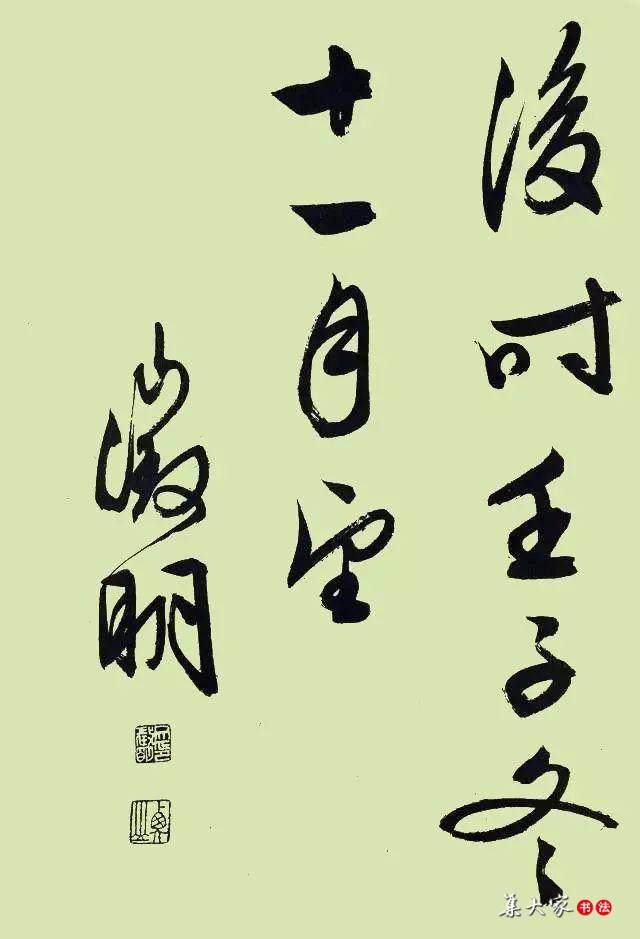 後时壬子冬
十一月望
徵明
集大家 书法